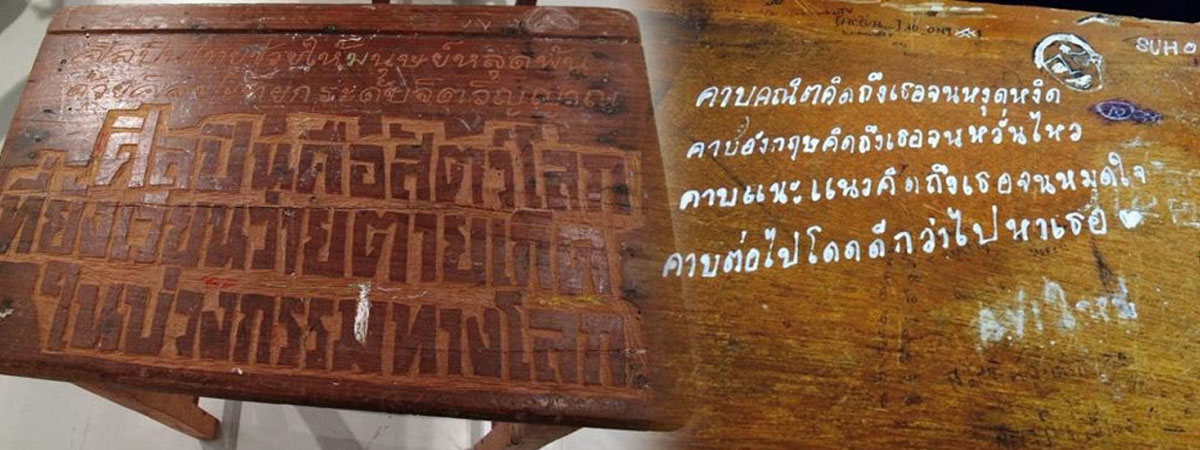 ช่วยให้มนุษย์หลุดพ้น
ยกระดับจิตวิญญาณ
ศิลปินคือสัตว์โลก
ที่ยังเวียนว่ายตายเกิด
ในบ่วงกรรมทางโลก
SUHO
คาบคณิตคิดถึงเธอจนหงุดหงิด
คาบอังกฤษคิดถึงเธอจนหวั่นไหว
คาบแนะแนวคิดถึงเธอจนหมดใจ
คาบต่อไปโดดดีกว่าไปหาเธอ ♥